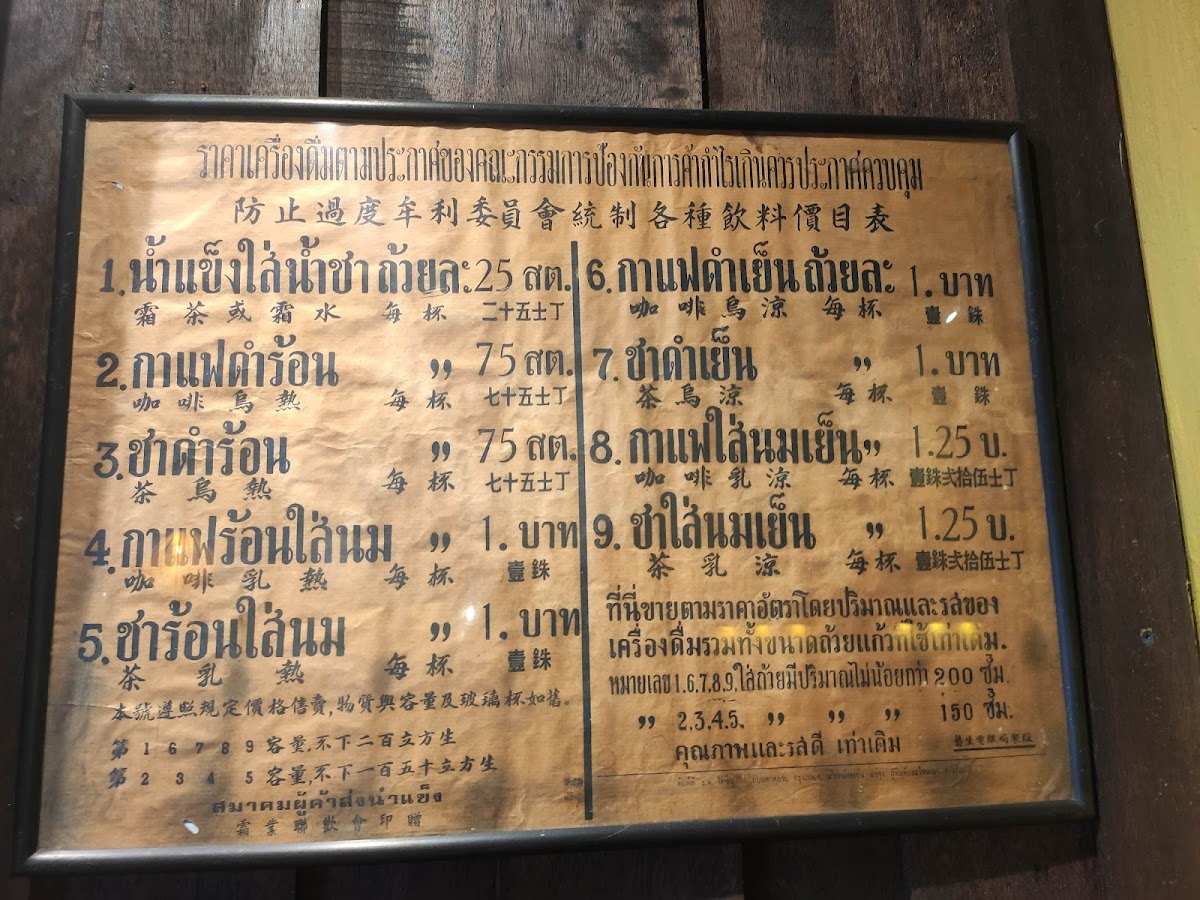 ราคาเครื่องดื่มตามประกาศของคณะกรรมการป้องกันการค้ากำไรเกินควรประกาศควบคุม
防止過度牟利委員會統制各種飲料價目表
1. น้ำแข็งใส่น้ำชา ถ้วยละ 25 สต.
霜茶或霜水 每杯 二十五士丁
2. กาแฟดำร้อน " 75 สต.
咖啡烏熱 每杯 七十五士丁
3. ชาดำร้อน " 75 สต.
茶烏熱 每杯 七十五士丁
4. กาแฟร้อนใส่นม " 1. บาท
咖啡乳熱 每杯 壹銖
5. ชาร้อนใส่นม " 1. บาท
茶乳熱 每杯 壹銖
本號遵照規定價格售賣,物質與容量及玻璃杯如舊。
第 1 6 7 8 9 容量,不下二百立方生
第 2 3 4 5 容量,不下一百五十立方生
สมาคมผู้ค้าส่งน้ำแข็ง
霜業聯歡會印贈
6. กาแฟดำเย็น ถ้วยละ 1. บาท
咖啡烏涼 每杯 壹銖
7. ชาดำเย็น " 1. บาท
茶烏涼 每杯 壹銖
8. กาแฟใส่นมเย็น " 1.25 บ.
咖啡乳涼 每杯 壹銖弍拾伍士丁
9. ชาใส่นมเย็น " 1.25 บ.
茶乳涼 每杯 壹銖弍拾伍士丁
ที่นี่ขายตามราคาอัตราโดยปริมาณและรสของ
เครื่องดื่มรวมทั้งขนาดถ้วยแก้วที่ใช้เท่าเดิม.
หมายเลข 1.6.7.8.9. ใส่ถ้วยมีปริมาณไม่น้อยกว่า 200 ซ.ม.
" 2.3.4.5. " " " 150 ซ.ม.
คุณภาพและรสดี เท่าเดิม